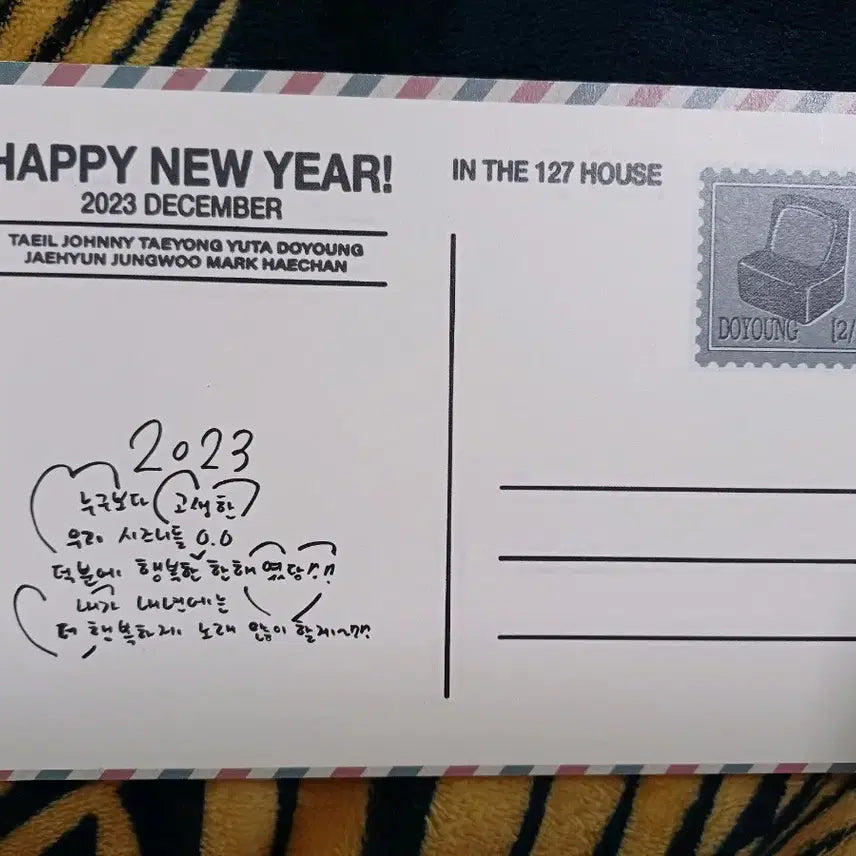 HAPPY NEW YEAR!
2023 DECEMBER
TAEIL JOHNNY TAEYONG YUTA DOYOUNG
JAEHYUN JUNGWOO MARK HAECHAN
IN THE 127 HOUSE
DOYOUNG [2/
2023
누구보다 고생한
우리 시즈니들 0.0
덕분에 행복한 한해였당!!
내가 내년에는
더 행복하게 노래 많이 할게~??